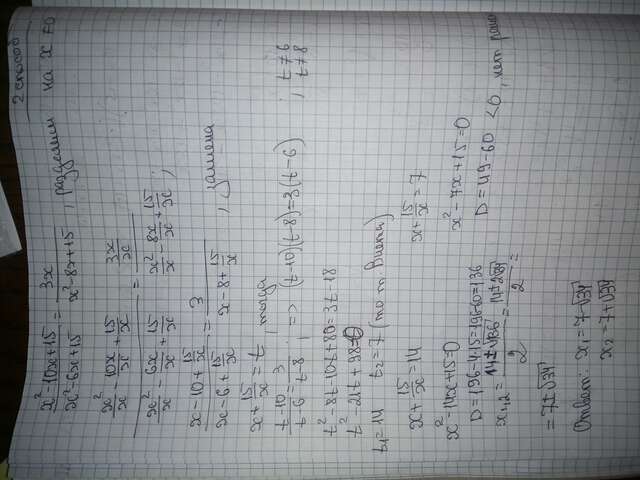 2 способ
x²-10x+15 / x²-6x+15 = 3x / x²-8x+15 ; разделим на x ≠0
(x²/x - 10x/x + 15/x) / (x²/x - 6x/x + 15/x) = (3x/x) / (x²/x - 8x/x + 15/x) ;
(x-10+15/x) / (x-6+15/x) = 3 / (x-8+15/x) ; замена
x+15/x = t ; тогда
t-10 / t-6 = 3 / t-8 ; => (t-10)(t-8)=3(t-6) ; t≠6 t≠8
t²-8t-10t+80=3t-18
t² 21t+98=0
t₁=14 t₂=7 (по т. Виета)
x+15/x=14 x+15/x=7
x²-14x+15=0 x²-7x+15=0
D=196-4·15=196-60=136 D=49-60 <0, нет реш
x₁,₂= 14±√136 / 2 = 14±2√34 / 2 =
=7±√34
Ответ: x₁=7-√34
x₂=7+√34